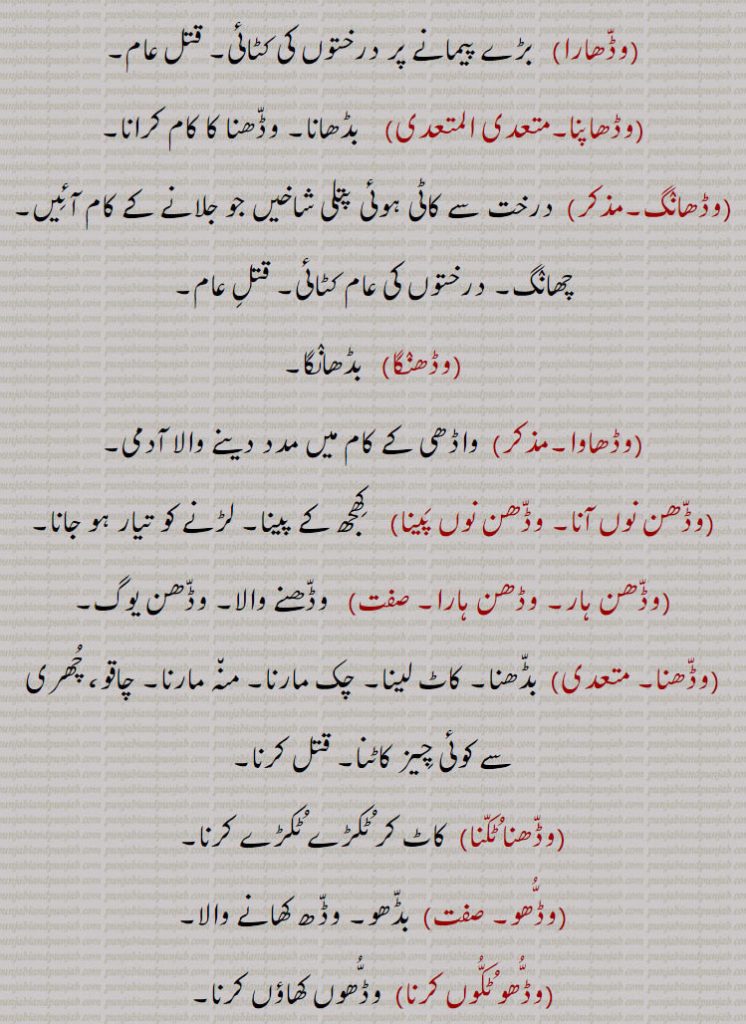 (وڈّھارا) بڑے پیمانے پر درختوں کی کٹائی۔ قتل عام۔
(وڈھاپنا۔متعدی المتعدی) بڈھانا۔ وڈّھنا کا کام کرانا۔
(وڈھانٛگ۔مذکر) درخت سے کاٹی ہوئی پتلی شاخیں جو جلانے کے کام آئیں۔
چھانٛگ۔ درختوں کی عام کٹائی۔ قتلِ عام۔
(وڈھنٛگا) بڈھانٛگا۔
(وڈھاوا۔مذکر) واڈھی کے کام میں مدد دینے والا آدمی۔
(وڈّھن نوں آنا۔ وڈّھن نوں پَینا) کِھجھ کے پینا۔ لڑنے کو تیار ہو جانا۔
(وڈّھن ہار۔ وڈھن ہارا۔ صفت) وڈّھنے والا۔ وڈّھن یوگ۔
(وڈّھنا۔ متعدی) بڈّھنا۔ کاٹ لینا۔ چک مارنا۔ منہّ مارنا۔ چاقو، چُھری
سے کوئی چِیز کاٹنا۔ قتل کرنا۔
(وڈّھنا ُٹکّنا) کاٹ کر ُٹکڑے ُٹکڑے کرنا۔
(وڈُّھو۔ صفت) بڈّھو۔ وڈّھ کھانے والا۔
(وڈُّھو ُٹکُّوں کرنا) وڈُّھوں کھاؤں کرنا۔